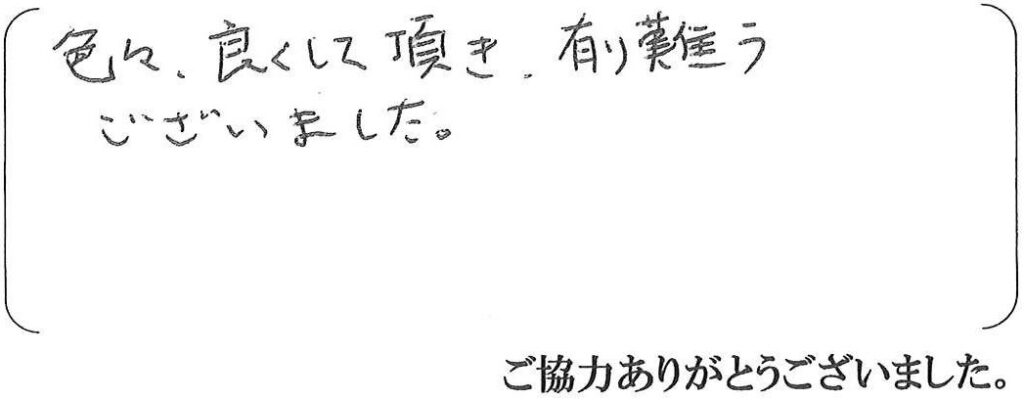 色々、良くして頂き、有り難う
ございました。
ご協力ありがとうございました。